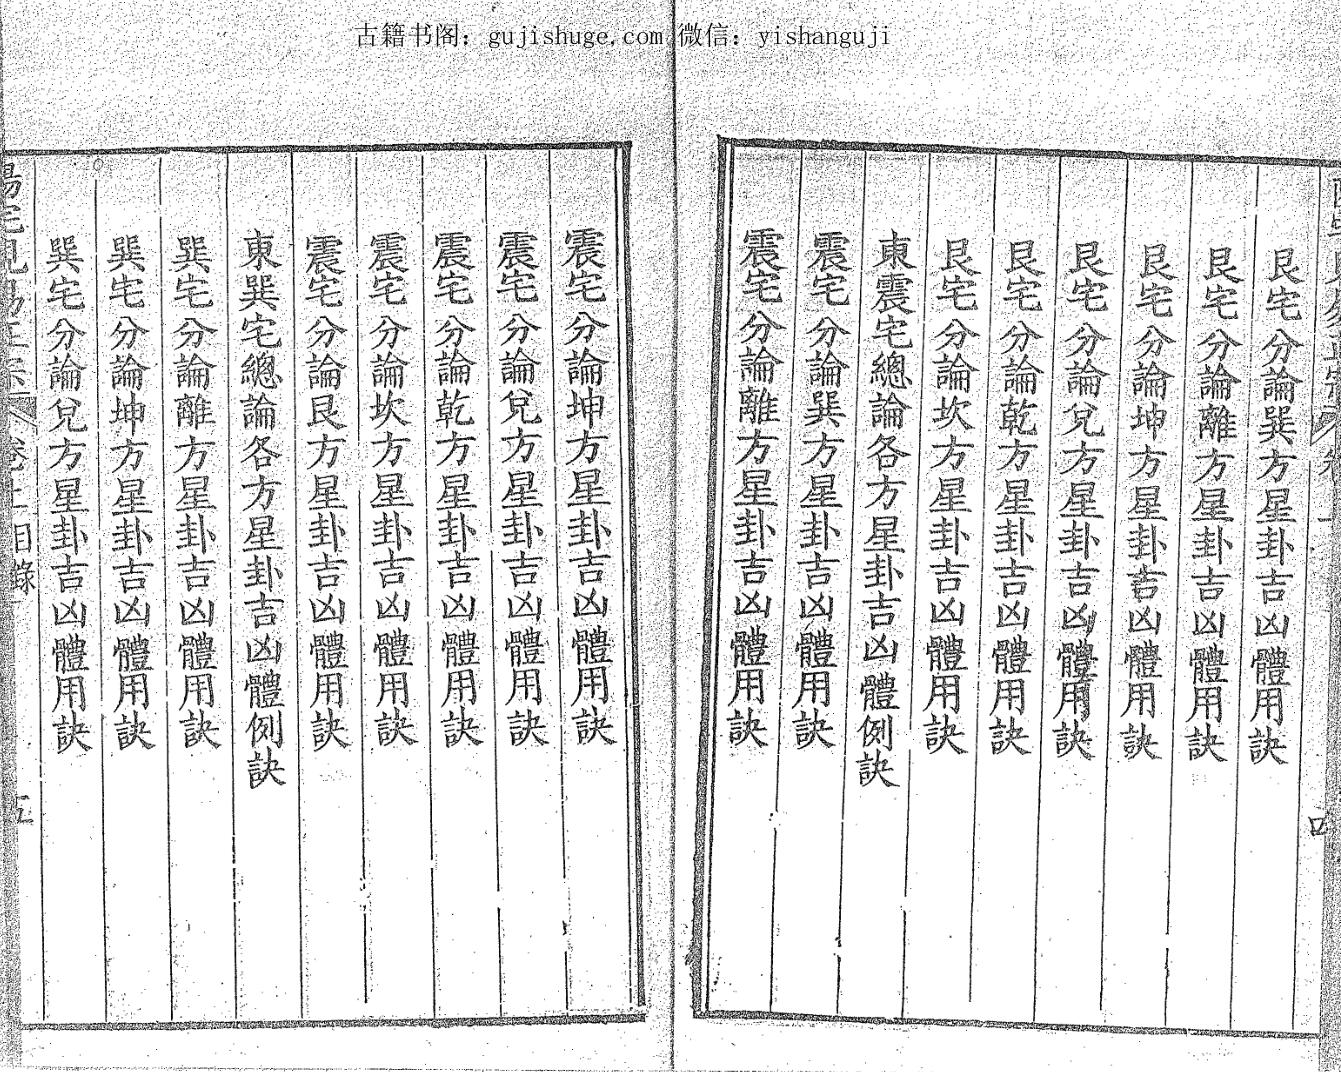 古籍书阁：gujishuge.com 微信：yishanguji
艮宅分論巽方星卦吉凶體用訣
艮宅分論離方星卦吉凶體用訣
艮宅分論坤方星卦吉凶體用訣
艮宅分論兌方星卦吉凶體用訣
艮宅分論乾方星卦吉凶體用訣
艮宅分論坎方星卦吉凶體用訣
東震宅總論各方星卦吉凶體例訣
震宅分論巽方星卦吉凶體用訣
震宅分論離方星卦吉凶體用訣
震宅分論坤方星卦吉凶體用訣
震宅分論兌方星卦吉凶體用訣
震宅分論乾方星卦吉凶體用訣
震宅分論坎方星卦吉凶體用訣
震宅分論艮方星卦吉凶體用訣
東巽宅總論各方星卦吉凶體例訣
巽宅分論離方星卦吉凶體用訣
巽宅分論坤方星卦吉凶體用訣
巽宅分論兌方星卦吉凶體用訣
卷上目錄
五